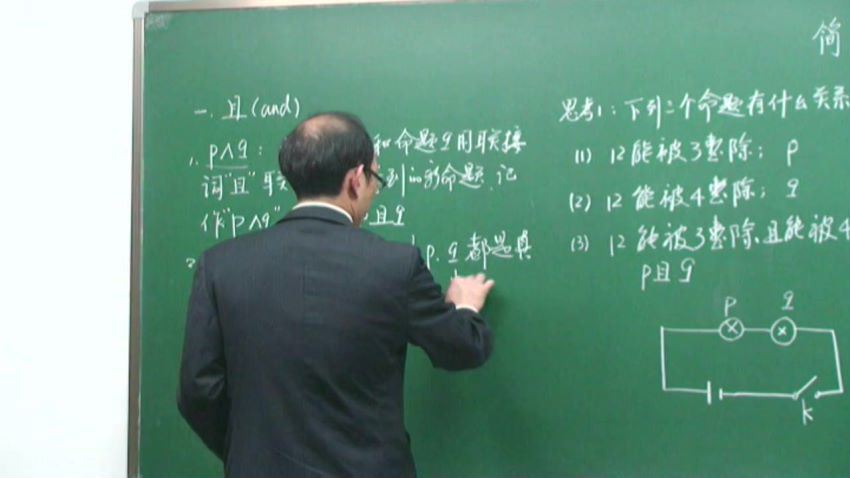 简
一、且(and)
1. p∧q: 和命题q用联接
词"且"联 到的新命题,记
作"p∧q" 且q
2. p.q都是真
思考1:下列三个命题有什么关系
(1) 12能被3整除; p
(2) 12能被4整除; q
(3) 12能被3整除且能被4
p且q
p q
k